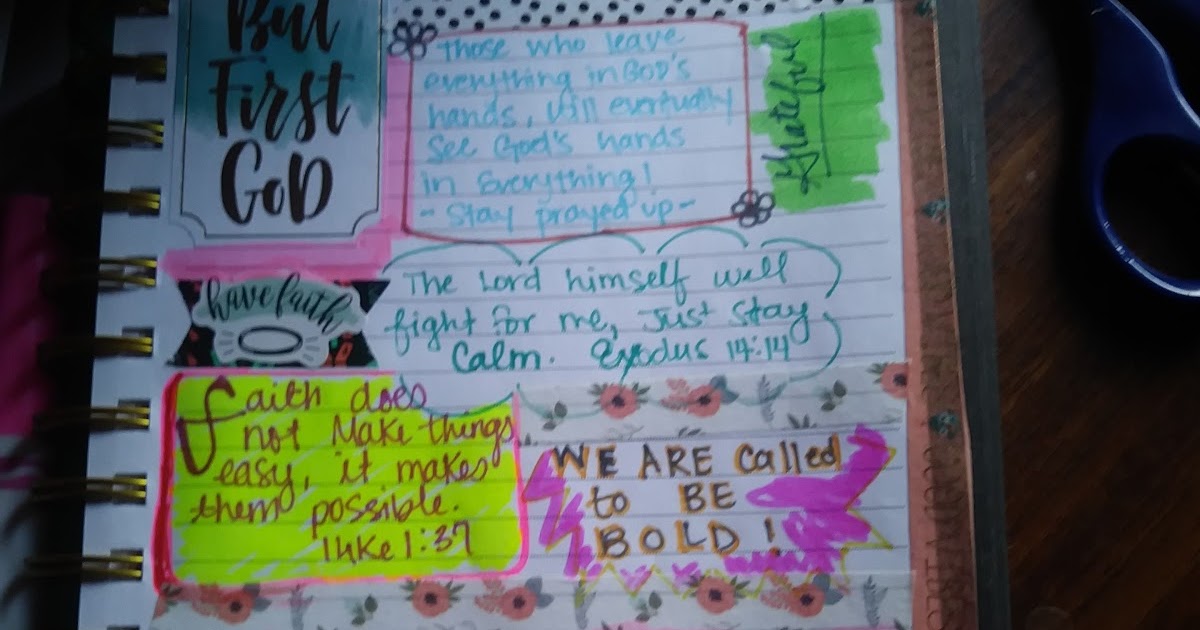 But
First
GOD
Those who leave
everything in GOD's
hands, will eventually
See God's hands
in Everything!
- Stay prayed up -
Grateful
have faith
The Lord himself well
fight for me, Just Stay
Calm. Exodus 14:14
Faith does
not Make things
easy, it makes
them possible.
luke 1:37
WE ARE called
to BE
BOLD!